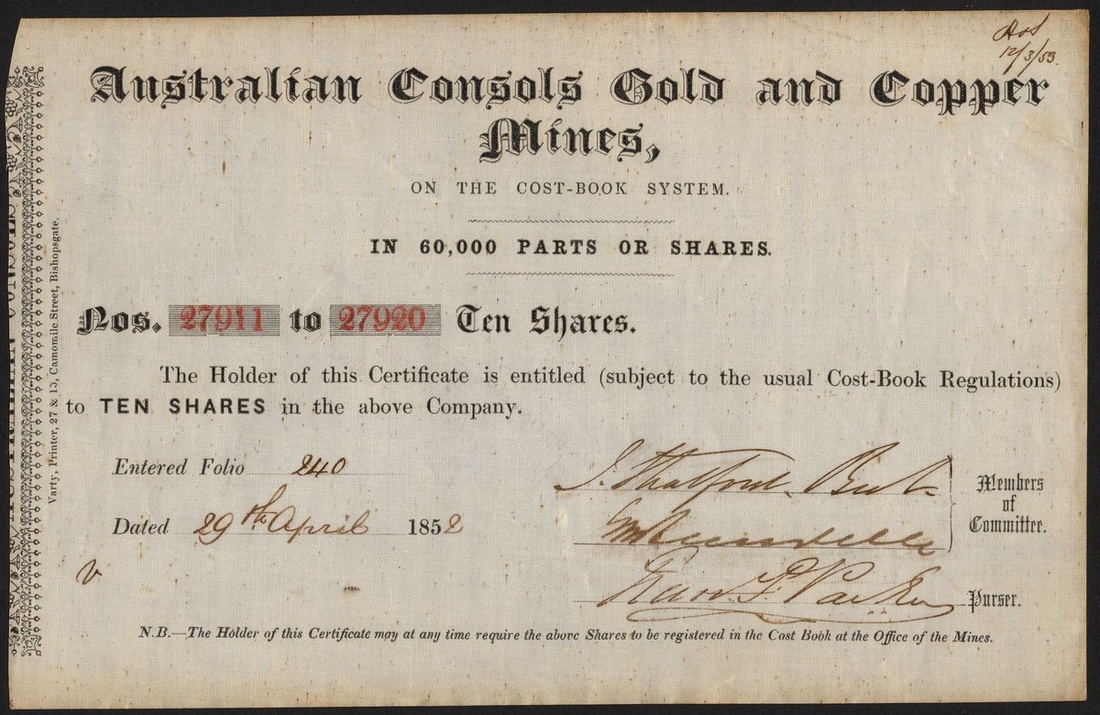 12/3/53.
Australian Consols Gold and Copper
Mines,
ON THE COST-BOOK SYSTEM.
IN 60,000 PARTS OR SHARES.
Nos. 27911 to 27920 Ten Shares.
The Holder of this Certificate is entitled (subject to the usual Cost-Book Regulations)
to TEN SHARES in the above Company.
Entered Folio 240
Dated 29th April 1852
Members
of
Committee.
Parker Purser.
N.B.—The Holder of this Certificate may at any time require the above Shares to be registered in the Cost Book at the Office of the Mines.
Varty, Printer, 27 & 15, Camomile Street, Bishopsgate.